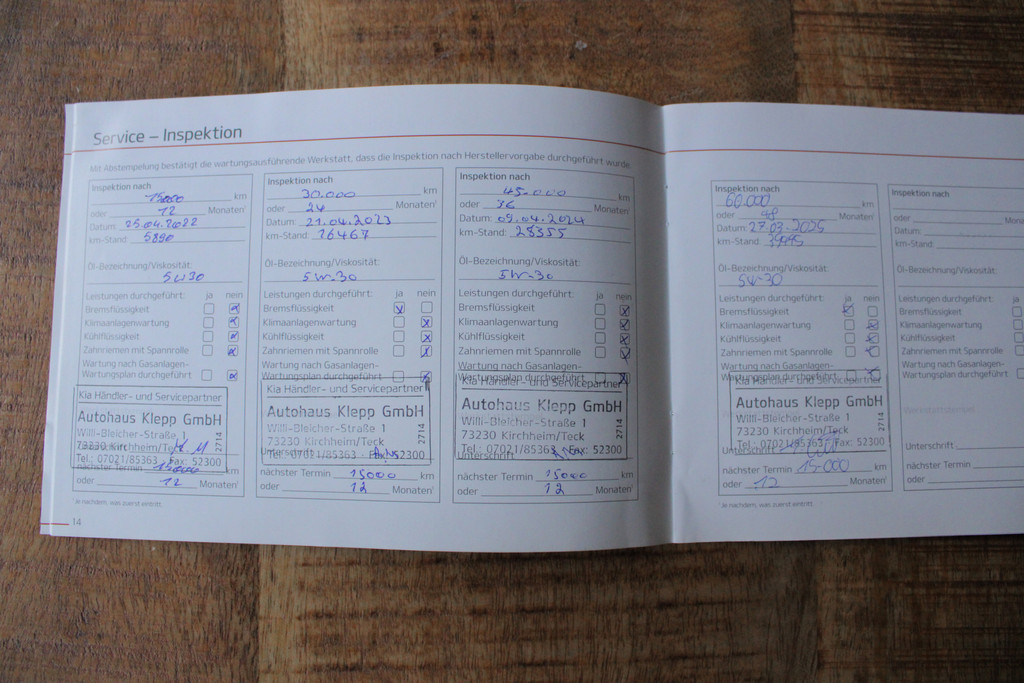 Service – Inspektion
Mit Abstempelung bestätigt die wartungsausführende Werkstatt, dass die Inspektion nach Herstellervorgabe durchgeführt wurde
Inspektion nach
15000 km
oder 12 Monaten¹
Datum: 25.04.2022
km-Stand: 5890
Öl-Bezeichnung/Viskosität:
5W30
Leistungen durchgeführt: ja nein
Bremsflüssigkeit
Klimaanlagenwartung
Kühlflüssigkeit
Zahnriemen mit Spannrolle
Wartung nach Gasanlagen-
Wartungsplan durchgeführt
Kia Händler- und Servicepartner
Autohaus Klepp GmbH
Willi-Bleicher-Straße 1
73230 Kirchheim/Teck
Tel.: 07021/85363 · Fax: 52300
2714
nächster Termin 15000 km
oder 12 Monaten¹
Inspektion nach
30.000 km
oder 24 Monaten¹
Datum: 21.04.2023
km-Stand: 16467
Öl-Bezeichnung/Viskosität:
5W-30
Leistungen durchgeführt: ja nein
Bremsflüssigkeit
Klimaanlagenwartung
Kühlflüssigkeit
Zahnriemen mit Spannrolle
Wartung nach Gasanlagen-
Wartungsplan durchgeführt
Kia Händler- und Servicepartner
Autohaus Klepp GmbH
Willi-Bleicher-Straße 1
73230 Kirchheim/Teck
Tel.: 07021/85363 · Fax: 52300
2714
Unterschrift
nächster Termin 15000 km
oder 12 Monaten¹
Inspektion nach
45.000 km
oder 36 Monaten¹
Datum: 09.04.2024
km-Stand: 28355
Öl-Bezeichnung/Viskosität:
5W-30
Leistungen durchgeführt: ja nein
Bremsflüssigkeit
Klimaanlagenwartung
Kühlflüssigkeit
Zahnriemen mit Spannrolle
Wartung nach Gasanlagen-
Wartungsplan durchgeführt
Kia Händler- und Servicepartner
Autohaus Klepp GmbH
Willi-Bleicher-Straße 1
73230 Kirchheim/Teck
Tel.: 07021/85363 · Fax: 52300
2714
Unterschrift
nächster Termin 15000 km
oder 12 Monaten¹
¹ Je nachdem, was zuerst eintritt.
14
Inspektion nach
60.000 km
oder 48 Monaten¹
Datum: 27.03.2025
km-Stand:
Öl-Bezeichnung/Viskosität:
5W-30
Leistungen durchgeführt: ja nein
Bremsflüssigkeit
Klimaanlagenwartung
Kühlflüssigkeit
Zahnriemen mit Spannrolle
Wartung nach Gasanlagen-
Wartungsplan durchgeführt
Kia Händler- und Servicepartner
Autohaus Klepp GmbH
Willi-Bleicher-Straße 1
73230 Kirchheim/Teck
Tel.: 07021/85363 · Fax: 52300
2714
Unterschrift
nächster Termin 15000 km
oder 12 Monaten¹
¹ Je nachdem, was zuerst eintritt.
Inspektion nach
oder
Datum:
km-Stand:
Öl-Bezeichnung/Viskosität:
Leistungen durchgeführt: ja
Bremsflüssigkeit
Klimaanlagenwartung
Kühlflüssigkeit
Zahnriemen mit Spannrolle
Wartung nach Gasanlagen-
Wartungsplan durchgeführt
Unterschrift:
nächster Termin
oder